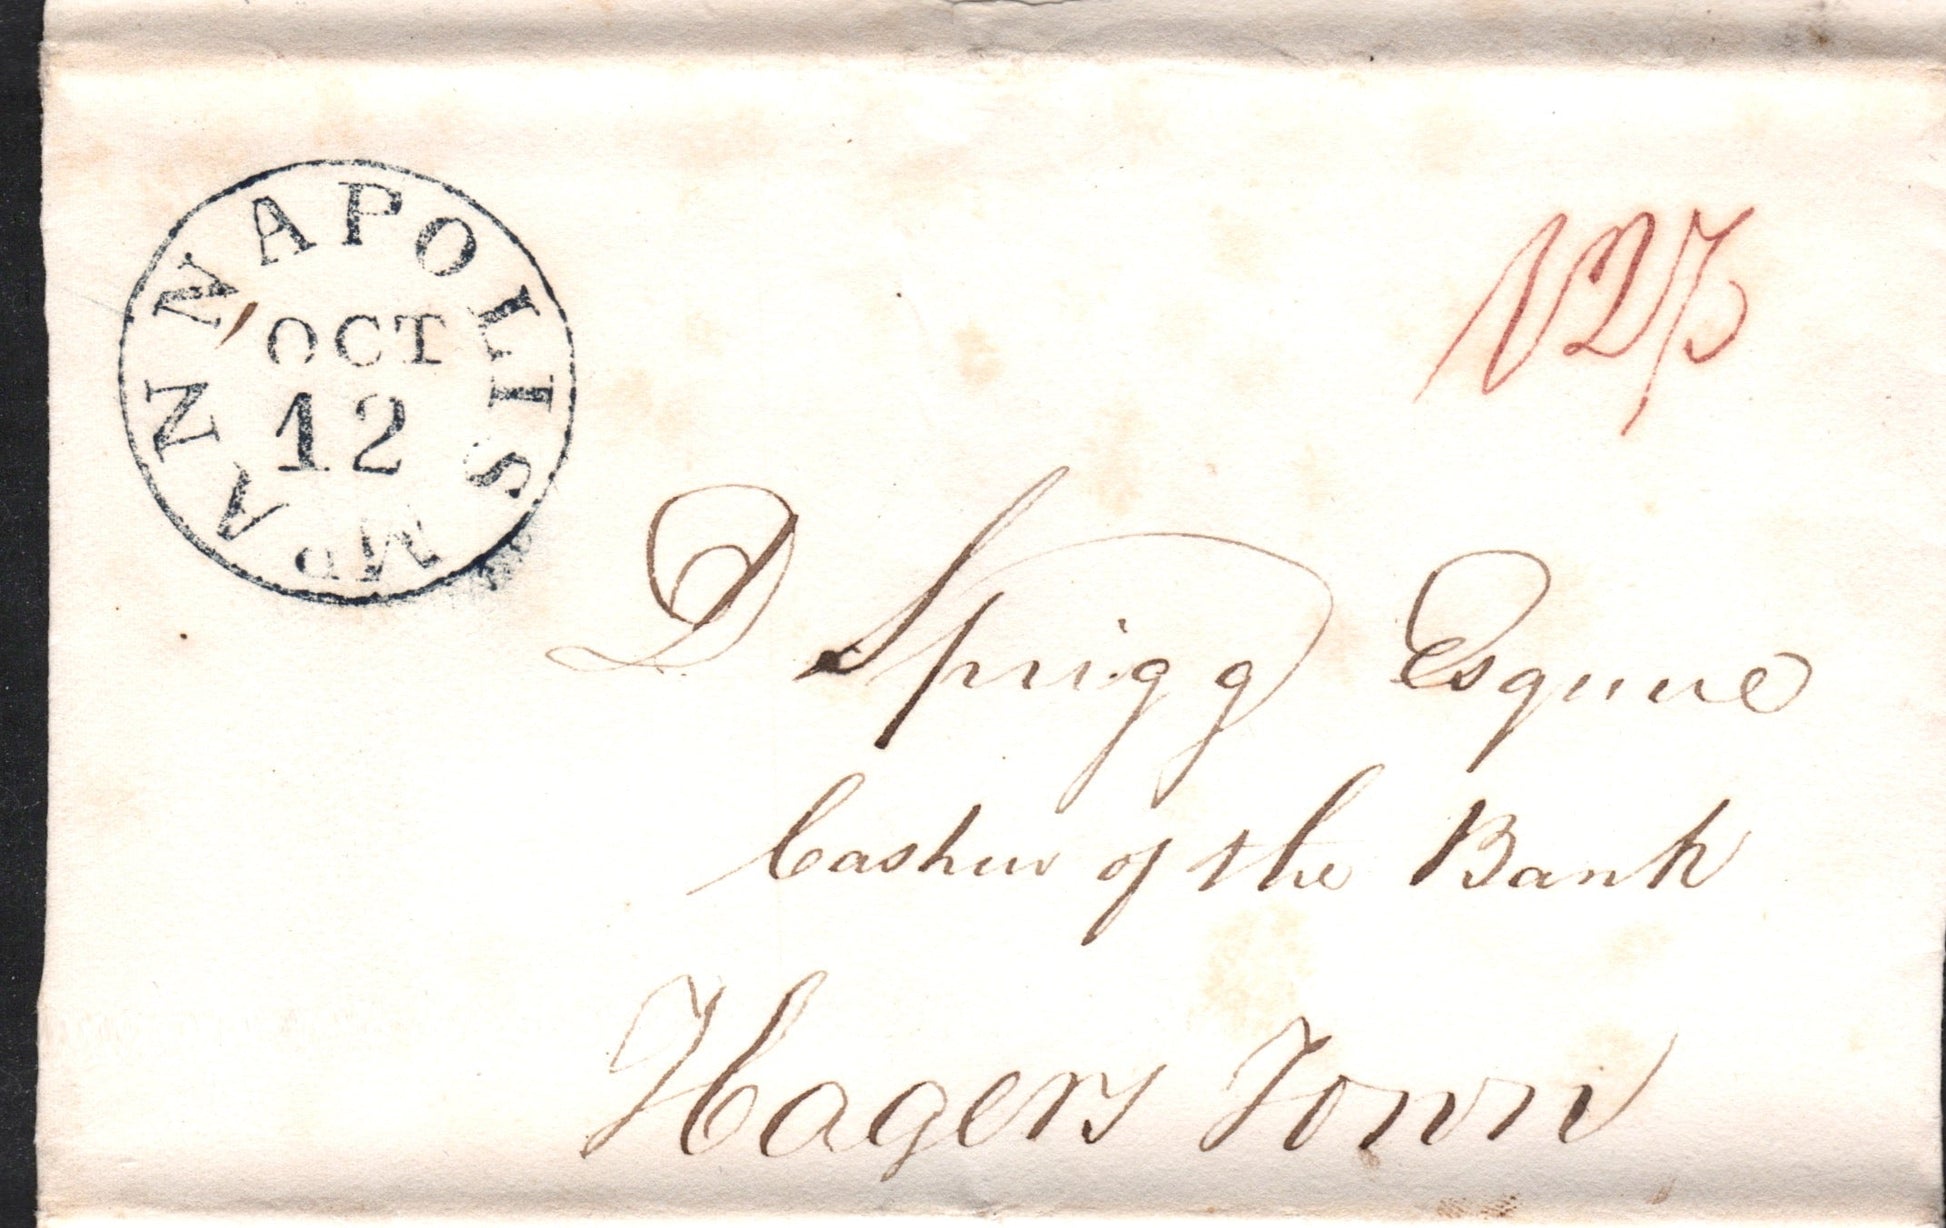 ANNAPOLIS Md
OCT
12
12½
D Sprigg Esquire
Cashier of the Bank
Hagers Town